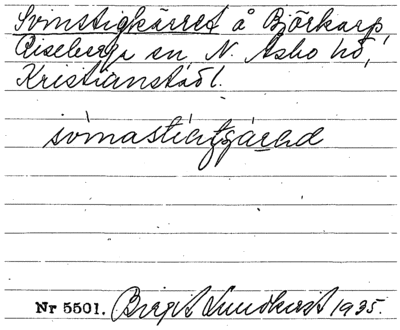 Svinstigkärret å Björkarp,
Riseberga sn, N. Åsbo hd,
Kristianstads l.
Nr 5501. Birgit Lundkvist 1935.